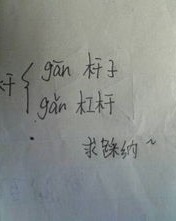 杆
gān 杆子
gǎn 杠杆
求采纳~